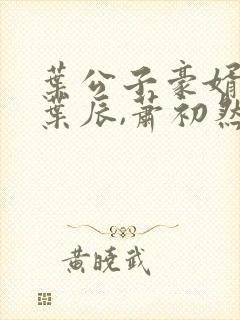 葉公子豪婿
葉辰,蕭初然
黃曉武